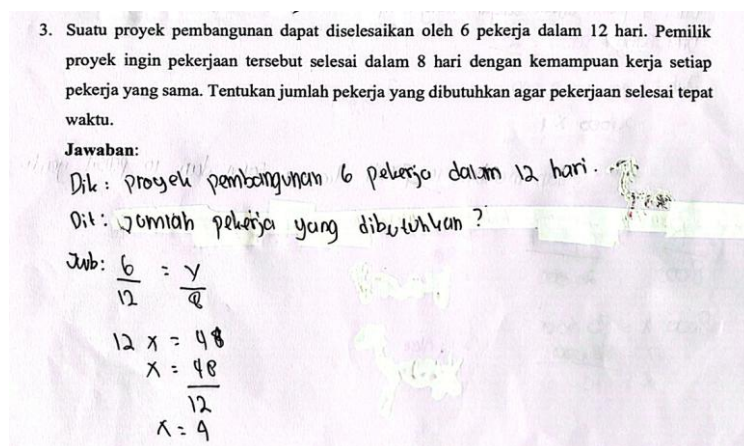 3. Suatu proyek pembangunan dapat diselesaikan oleh 6 pekerja dalam 12 hari. Pemilik
proyek ingin pekerjaan tersebut selesai dalam 8 hari dengan kemampuan kerja setiap
pekerja yang sama. Tentukan jumlah pekerja yang dibutuhkan agar pekerjaan selesai tepat
waktu.
Jawaban:
Dik : proyek pembangunan 6 pekerja dalam 12 hari.
Dit : Jumlah pekerja yang dibutuhkan ?
Jwb : 6/12 = y/8
12 x = 48
x = 48/12
x = 4